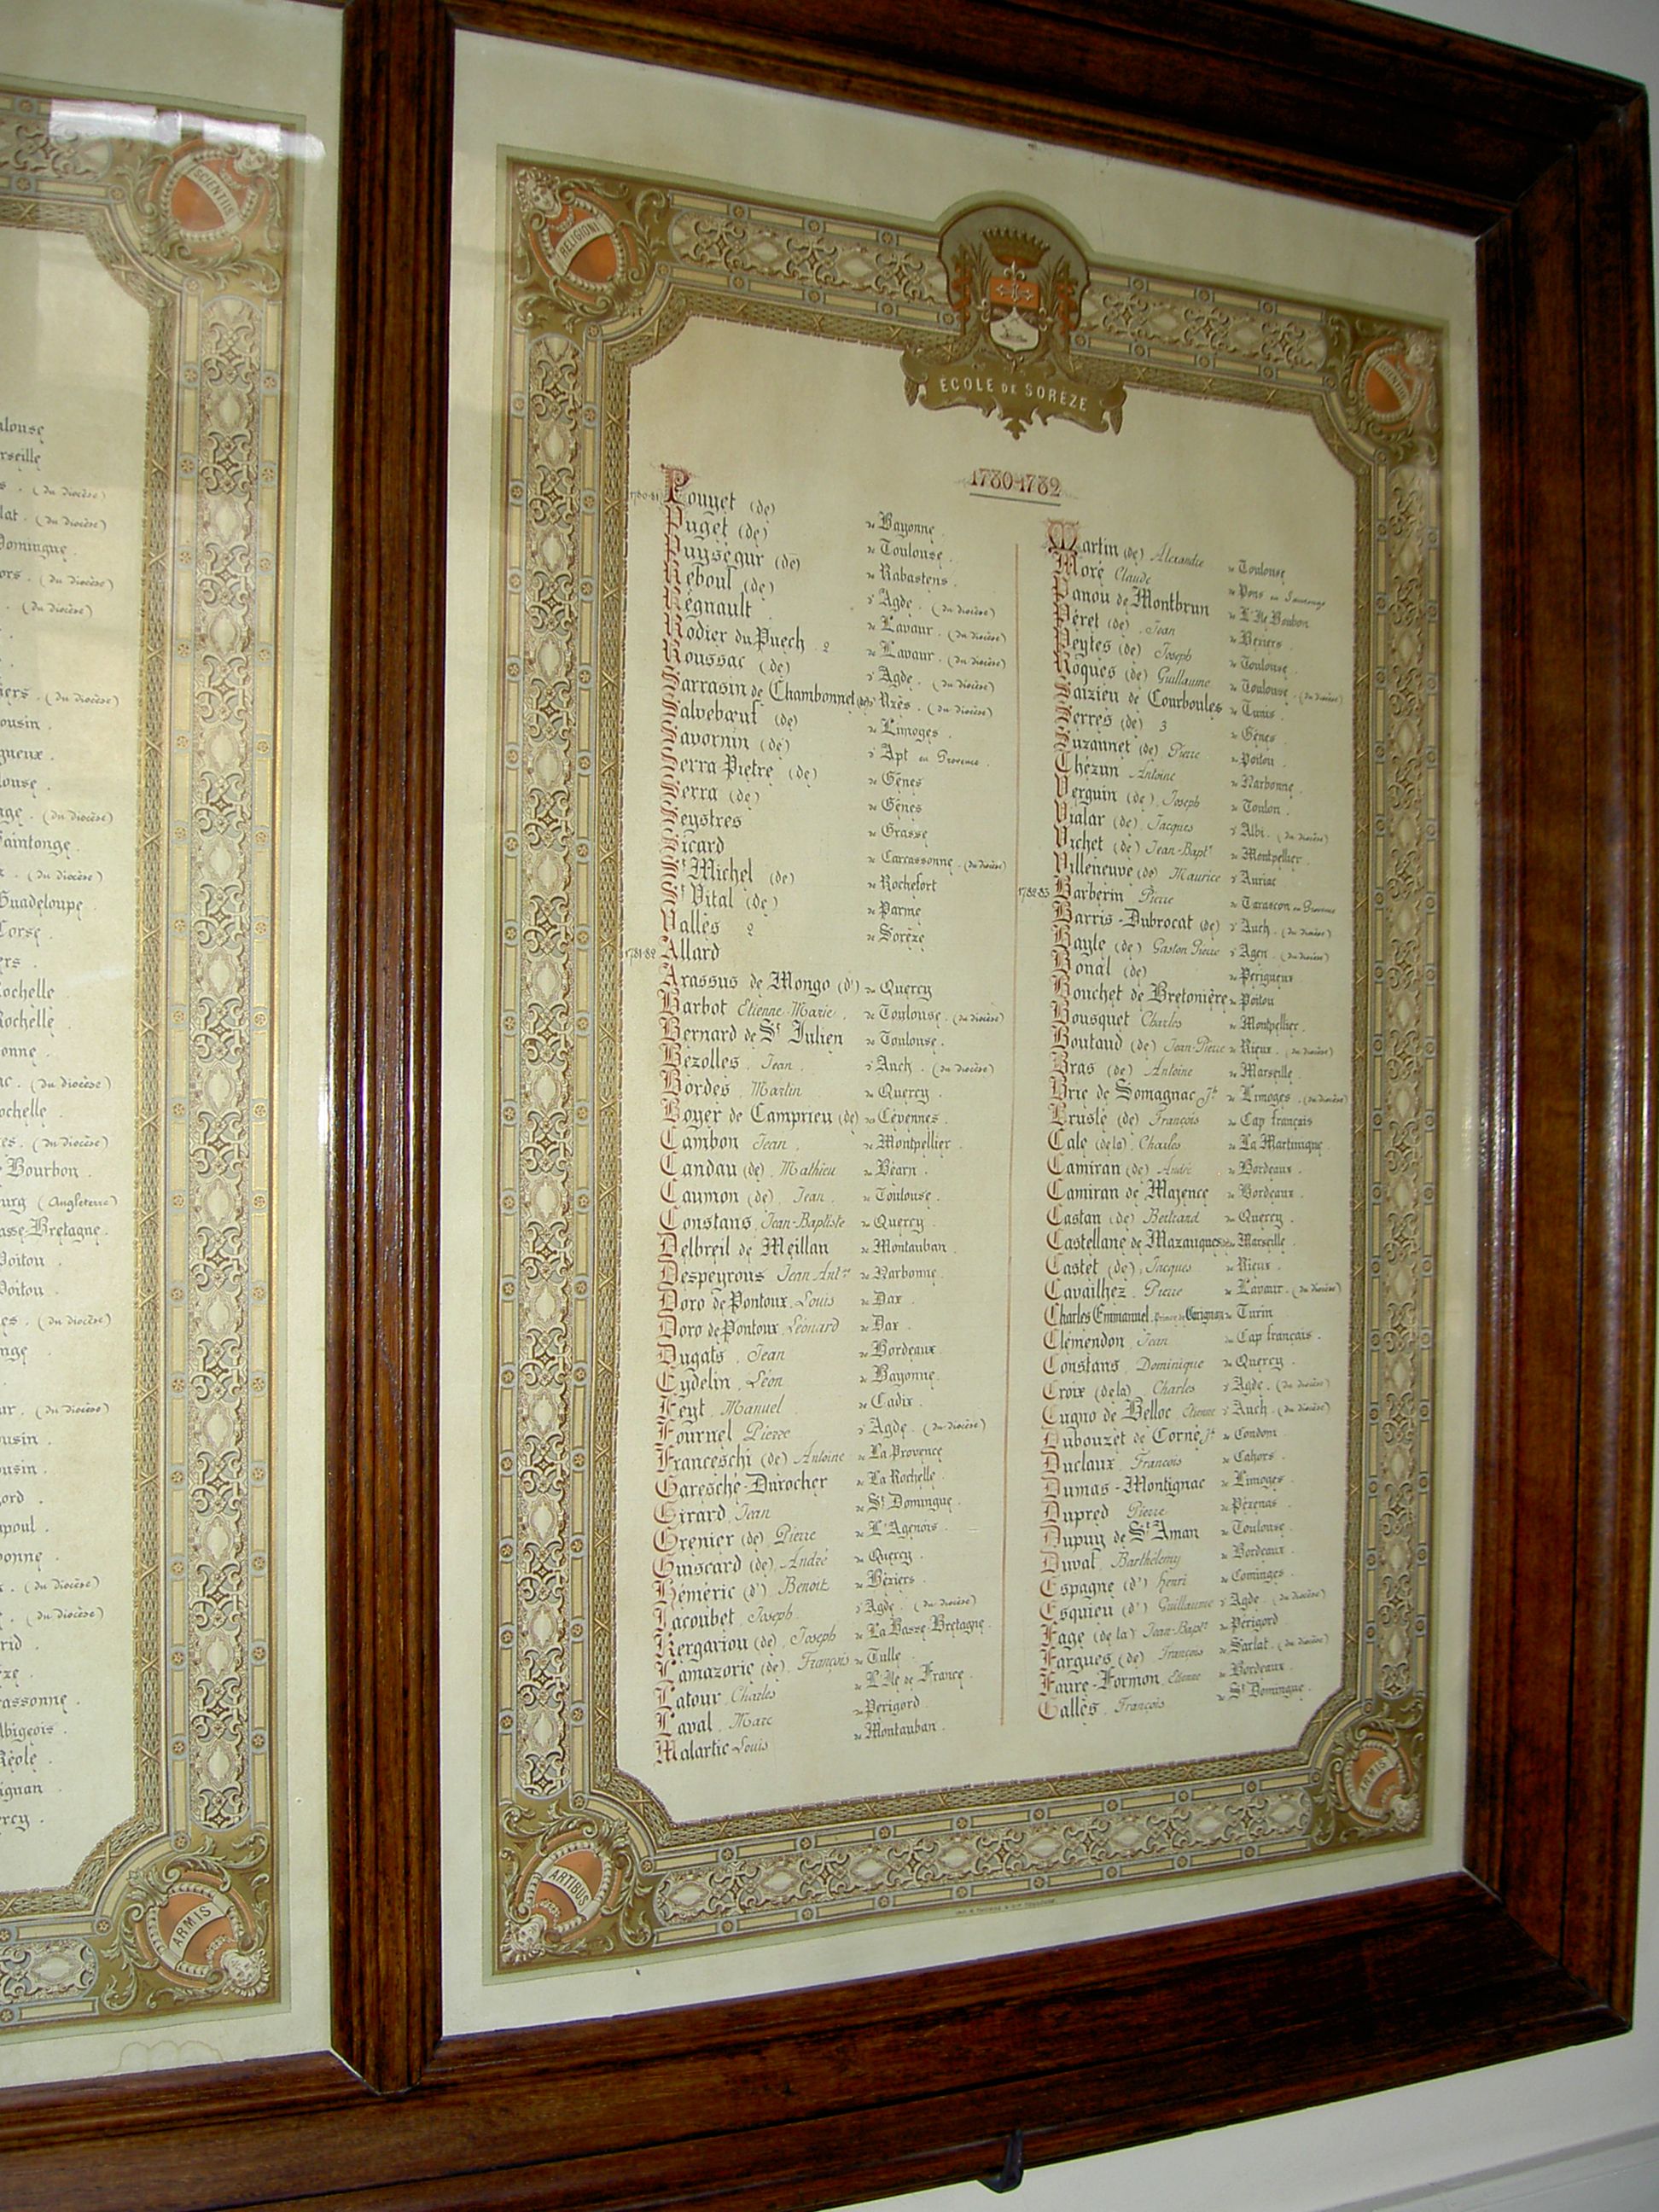 SCIENTIIS
alouse
rseille
s. (du diocèse)
lat. (du diocèse)
Domingue
ors. (du diocèse)
. (du diocèse)
iers. (du diocèse)
ousin.
gueux.
louse.
age. (du diocèse)
Saintonge.
. (du diocèse)
Guadeloupe.
Corse.
ers.
Rochelle
Rochelle.
onne.
ac. (du diocèse)
ochelle.
es. (du diocèse)
Bourbon.
urg (Angleterre)
asse-Bretagne.
Poitou
Poitou.
es. (du diocèse)
nge.
ur. (du diocèse)
usin.
usin.
ord.
apoul.
bonne.
. (du diocèse)
. (du diocèse)
rid.
èze.
rcassonne.
lbigeois.
Réole.
ignan.
ercy.
ARMIS
RELIGIONI
SCIENTIIS
ÉCOLE DE SORÈZE
1780-1782
1780-81 Pouget (de) de Bayonne
Puget (de) de Toulouse.
Puységur (de) de Rabastens.
Reboul (de) d'Agde. (du diocèse)
Régnault de Lavaur. (du diocèse)
Rodier du Puech. 2 de Lavaur. (du diocèse)
Roussac (de) d'Agde. (du diocèse)
Sarrasin de Chambonnet (de) d'Uzès. (du diocèse)
Salvebœuf (de) de Limoges.
Savornin (de) d'Apt en Provence.
Serra Pietre (de) de Gênes
Serra (de) de Gênes
Seystres de Grasse
Sicard de Carcassonne. (du diocèse)
St Michel (de) de Rochefort
St Vital (de) de Parme
Vallès 2 de Sorèze
1781-82 Allard
Arassus de Mongo (d') de Quercy
Barbot Etienne Marie. de Toulouse. (du diocèse)
Bernard de St Julien de Toulouse.
Bezolles. Jean. d'Auch. (du diocèse)
Bordes Martin de Quercy.
Boyer de Camprieu (de) des Cévennes.
Cambon Jean. de Montpellier.
Candau (de) Mathieu de Béarn.
Caumon (de) Jean. de Toulouse.
Constans Jean-Baptiste de Quercy.
Delbreil de Meillan de Montauban
Despeyrous Jean Antne de Narbonne.
Doro de Pontoux. Louis de Dax.
Doro de Pontoux. Léonard de Dax.
Dugats. Jean de Bordeaux.
Eydelin. Léon de Bayonne.
Feyt. Manuel de Cadix.
Fournel Pierre d'Agde. (du diocèse)
Franceschi (de) Antoine de La Provence
Garesché-Durocher de La Rochelle.
Girard Jean de St Domingue.
Grenier (de) Pierre de L'Agenois.
Guiscard (de) André de Quercy.
Héméric (d') Benoit de Béziers.
Jacoubet Joseph d'Agde. (du diocèse)
Kergariou (de) Joseph de La Basse-Bretagne.
Lamazorie (de) François de Tulle.
Latour Charles de L'Ile de France.
Laval Marc de Périgord
Malartic Louis de Montauban.
Martin (de) Alexandre de Toulouse
Moré Claude de Pons en Saintonge
Panou de Montbrun de L'Ile Bourbon
Péret (de). Jean de Béziers.
Peytes (de) Joseph de Toulouse.
Roques (de) Guillaume de Toulouse. (du diocèse)
Saizieu de Courboules de Tunis.
Serres (de) 3 de Gênes
Suzannet (de) Pierre de Poitou.
Thézan Antoine de Narbonne.
Verguin (de). Joseph de Toulon.
Vialar (de). Jacques d'Albi. (du diocèse)
Vichet (de) Jean-Bapte de Montpellier.
Villeneuve (de) Maurice d'Auriac
1782-83 Barberin Pierre de Tarascon en Provence
Barris-Dubrocat (de) d'Auch. (du diocèse)
Bayle (de) Gaston Pierre d'Agen. (du diocèse)
Bonal (de) de Périgueux
Bouchet de Bretonière de Poitou
Bousquet Charles de Montpellier.
Boutaud (de) Jean-Pierre de Rieux. (du diocèse)
Bras (de) Antoine de Marseille
Brie de Somagnac Jh de Limoges. (du diocèse)
Bruslé (de) François de Cap français
Cale (de la). Charles de La Martinique.
Camiran (de) André de Bordeaux.
Camiran de Majence de Bordeaux.
Castan (de) Bertrand de Quercy.
Castellane de Mazaugues (de) de Marseille.
Castet (de). Jacques de Rieux.
Cavailhez. Pierre de Lavaur. (du diocèse)
Charles Emmanuel. Prince de Carignan de Turin.
Clémendon Jean de Cap français.
Constans. Dominique de Quercy.
Croix (de la). Charles d'Agde. (du diocèse)
Cugno de Belloc Etienne d'Auch. (du diocèse)
Dubouzet de Corné Jh de Condom.
Duclaux. François de Cahors.
Dumas-Montignac de Limoges.
Dupred Pierre de Pézenas
Dupuy de St Aman de Toulouse.
Duval. Barthélemy de Bordeaux.
Espagne (d') Henri de Cominges.
Esquieu (d') Guillaume d'Agde. (du diocèse)
Fage (de la) Jean-Bapte de Périgord
Fargues (de) François de Sarlat. (du diocèse)
Faure-Formon Etienne de Bordeaux.
Gallès. François de St Domingue.
ARTIBUS
ARMIS